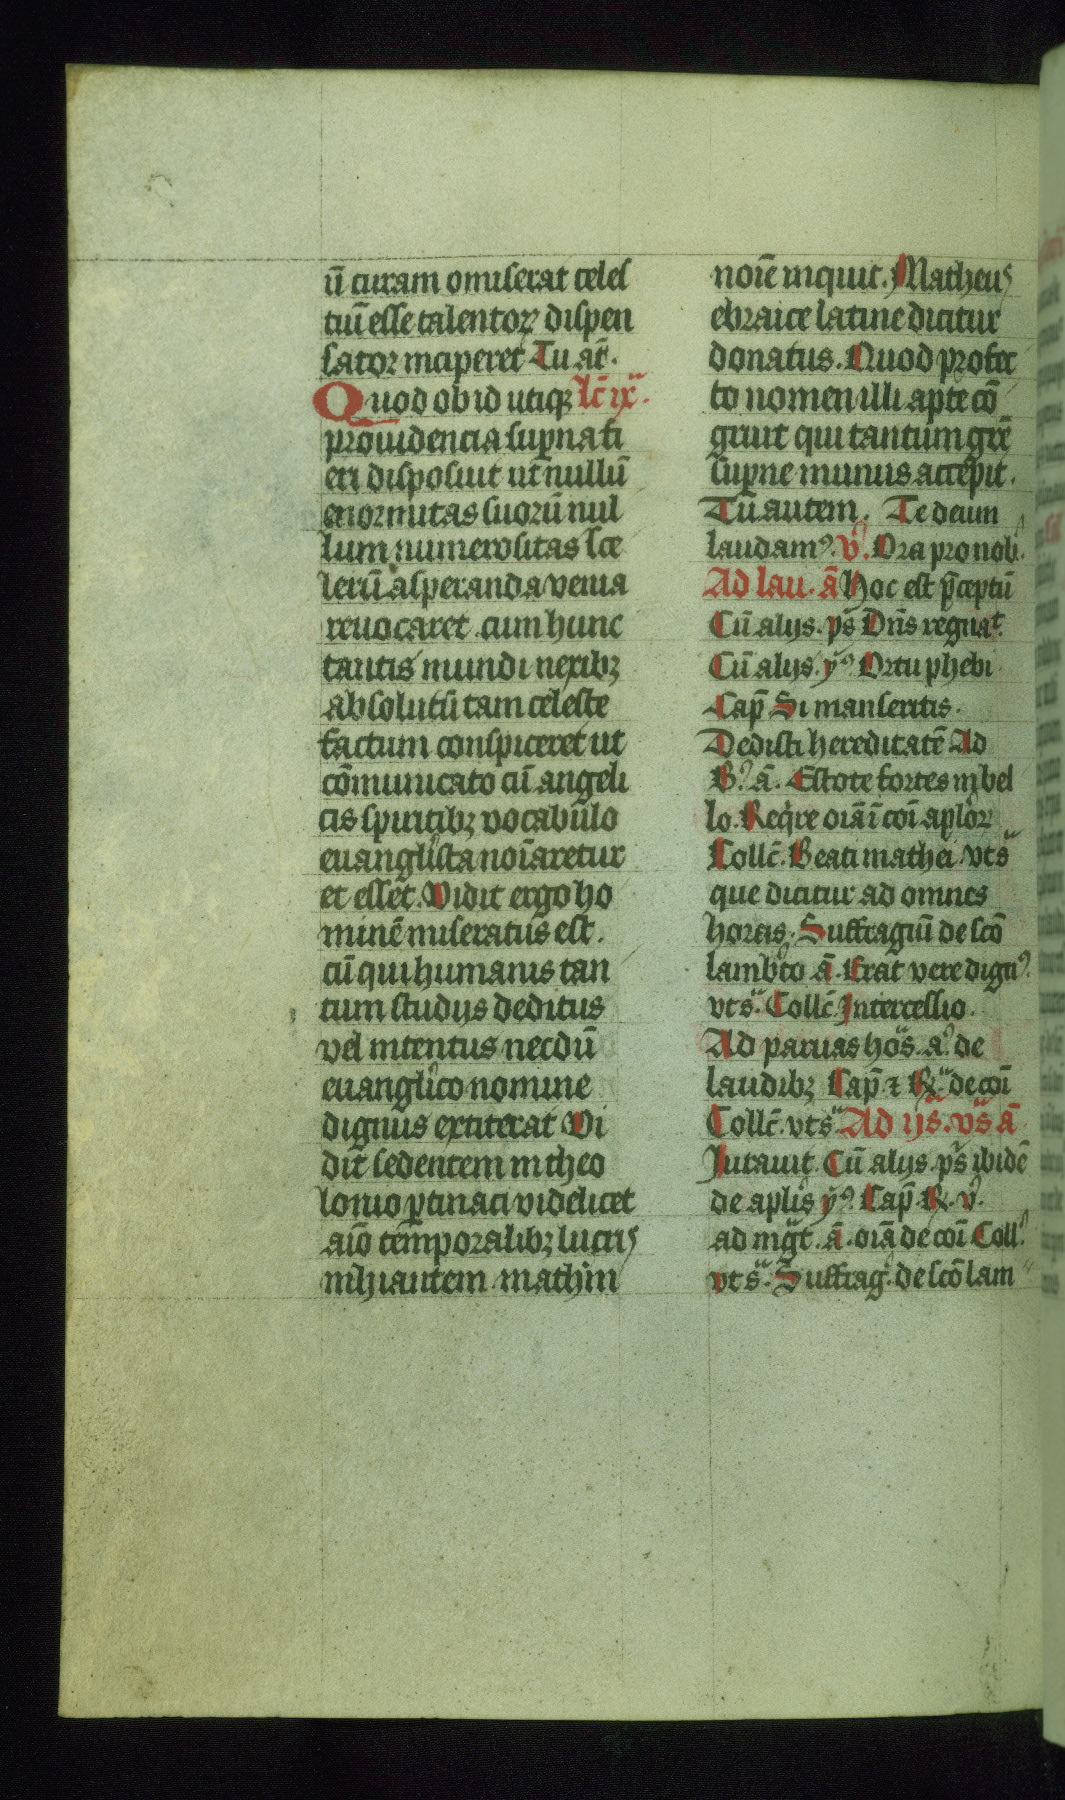 ū curam omiserat celes
tiū esse talentoꝝ dispen
sator inciperet Tu at̄.
Quod ob id utiqꝫ lc̄ ix᷈.
prouidencia sup̲na fi
eri disposuit ut nullū
enormitas suorū nul
lum numerositas sce
lerū asperanda venia
reuocaret cum hunc
tantis mundi nexibꝫ
absolutū tam celeste
factum conspiceret ut
cōmunicato cū angeli
cis spiritibꝫ vocabulo
euanglista noīaretur
et esset. Vidit ergo ho
minē miseratus est.
cū qui humanis tan
tum studijs deditus
vel intentus necdū
euanglico nomine
dignus extiterat Vi
dit sedentem in theo
lonio ꝑtinaci videlicet
aīo temporalibꝫ lucris
inhiautem matheū
noīe inquit. Matheus
ebraice latine dicitur
donatus. Quod profec
to nomen illi apte cō
gruit qui tantum grē
sup̲ne munus accepit.
Tū autem. Te deum
laudamꝰ. v̓. Ora pro nob̓.
Ad lau. ā Hoc est p̄ceptū
Cū alijs. ps̄ Dn̄s regnat.
Cū alijs. ẏꝰ Ortu phebi
Cap̄ Si manseritis.
Dedisti hereditatē Ad
B̓. ā. Estote fortes in bel
lo. Reqͥre oīa ī coī aploꝝ
Collc̄. Beati mathei vts᷈
que dicitur ad omnes
horas. Suffragiū de scō
lambto ā. Erat vere dignꝰ.
vts᷈. Collc̄. Intercessio.
Ad paruas hos᷈. a̓. de
laudibꝫ Cap̄ ⁊ R᷈ de coī
Collc̄. vts᷈ Ad ijs᷈. vs᷈ ā
Iurauit. Cū alijs. ps̄ ibidē
de aplis ẏꝰ. Cap̄. R. v̓.
ad mg̅t. ā. oīa de coī Coll̓.
vts᷈. Suffrag̓. de scō lam